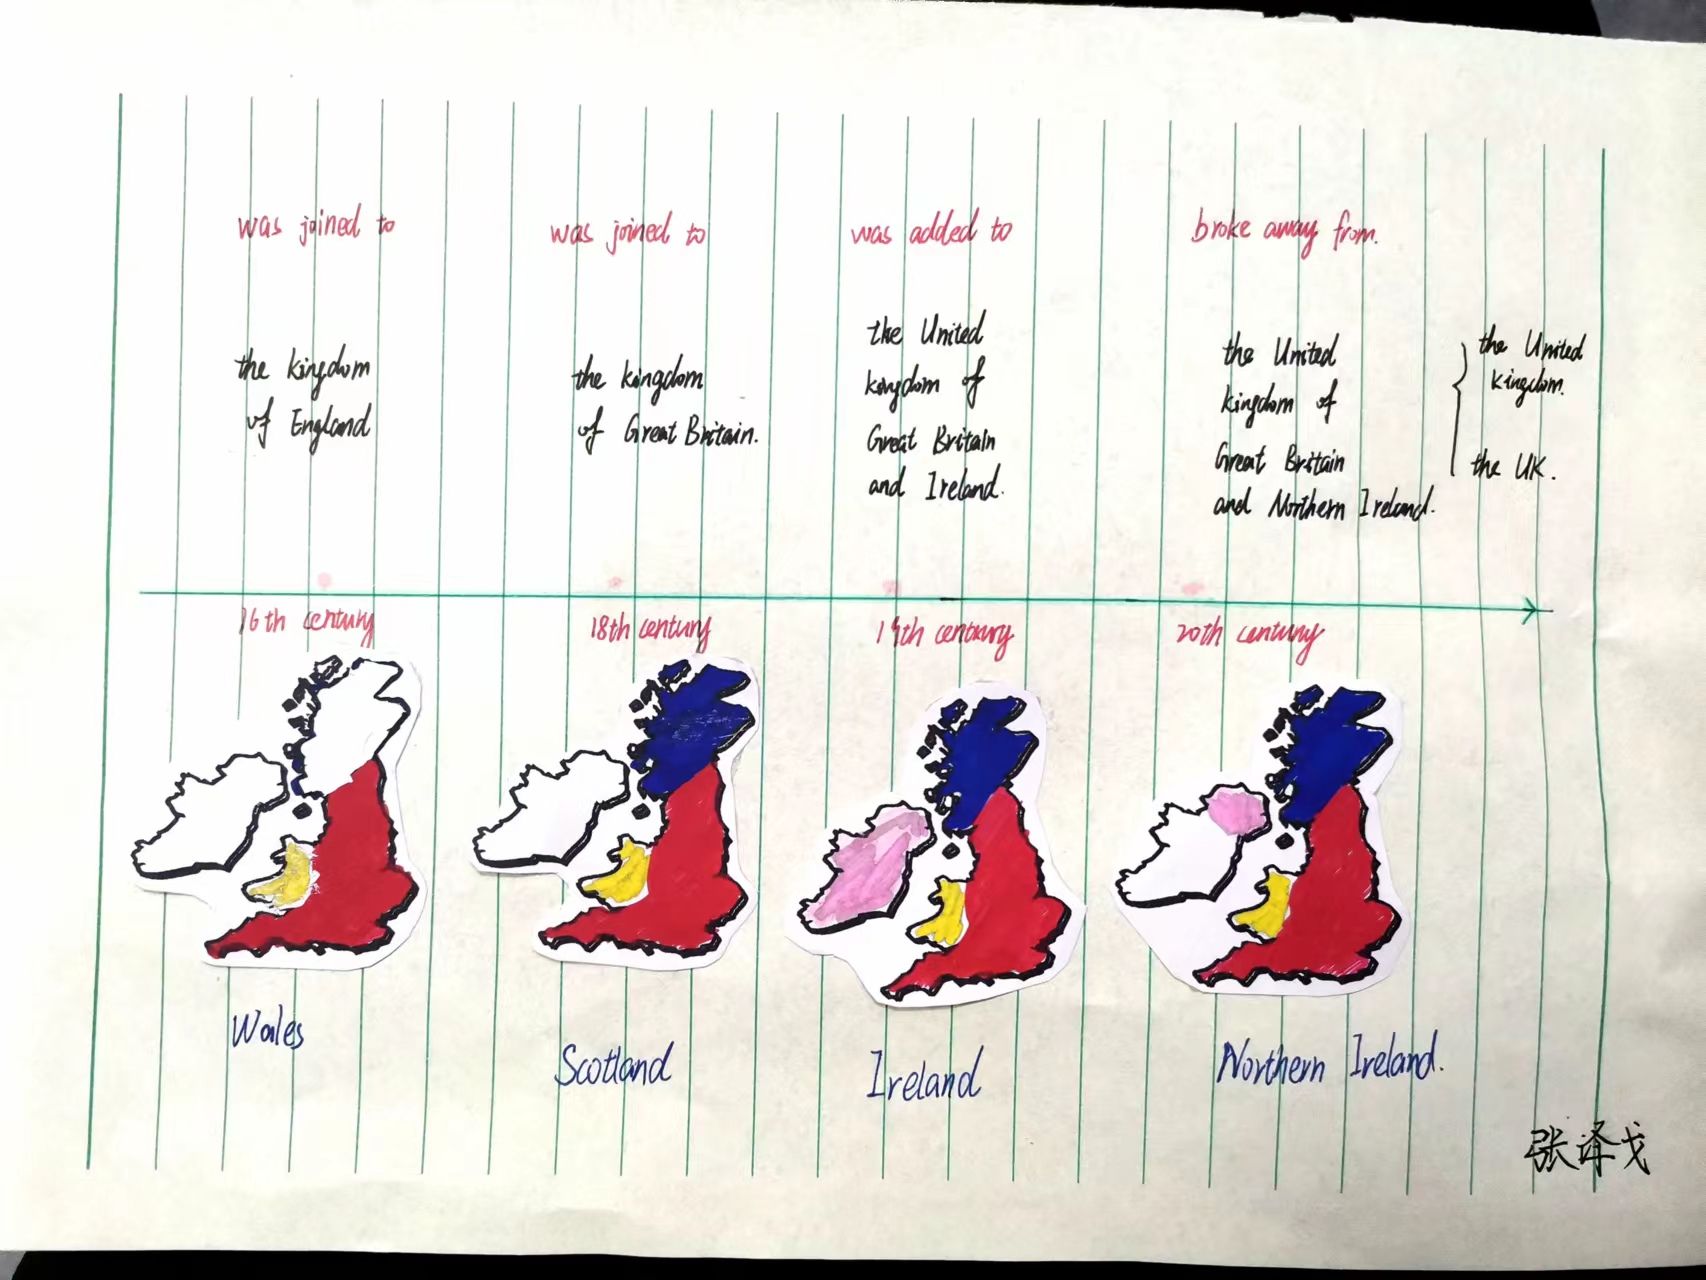 was joined to
was joined to
was added to
broke away from.
the kingdom
of England
the kingdom
of Great Britain.
the United
kingdom of
Great Britain
and Ireland.
the United
kingdom of
Great Britain
and Northern Ireland.
the United
kingdom.
the UK.
16th century
18th century
19th century
20th century
Wales
Scotland
Ireland
Northern Ireland.
张泽戈